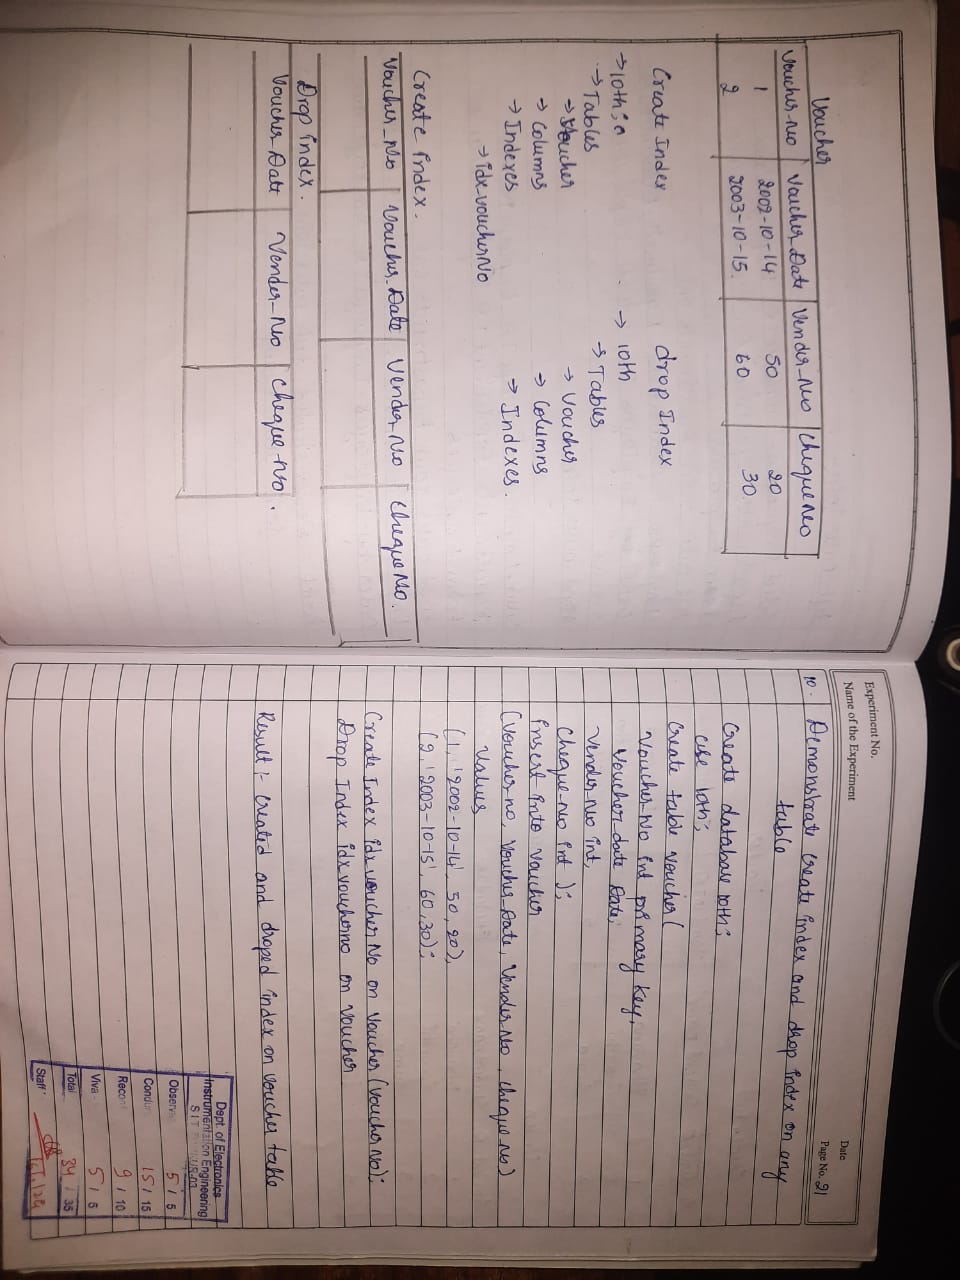 Voucher
Voucher-No Voucher_Date Vender-No ChequeNo
1 2002-10-14 50 20
2 2003-10-15. 60 30
Create Index drop Index
→10th; → 10th
→Tables → Tables
→Voucher → Voucher
→ Columns → Columns
→ Indexes → Indexes.
→ idx-voucherNo
Create index.
Voucher_No Voucher_Date Vender_No ChequeNo.
Drop index.
Voucher_Date Vender_No Cheque-No.
Experiment No.
Name of the Experiment
Date
Page No. 21
10. Demonstrate Create index and drop index on any
table
Create database 10th;
use 10th;
Create table voucher(
Voucher-No int primary key,
Voucher_date Date,
Vender-No int,
Cheque-No int );
insert into voucher
(Voucher no, Voucher_Date, Vender_No, cheque_No)
Values
(1, '2002-10-14', 50, 20),
(2, '2003-10-15', 60, 30);
Create Index idx voucher No on Voucher (Voucher No);
Drop Index idx voucherno on Voucher
Result :- Created and droped index on voucher table
Dept. of Electronics
Instrumentation Engineering
SIT
Observ 5 / 5
Condu 15 / 15
Recor 9 / 10
Viva - 5 / 5
Total 34 / 35
Staff